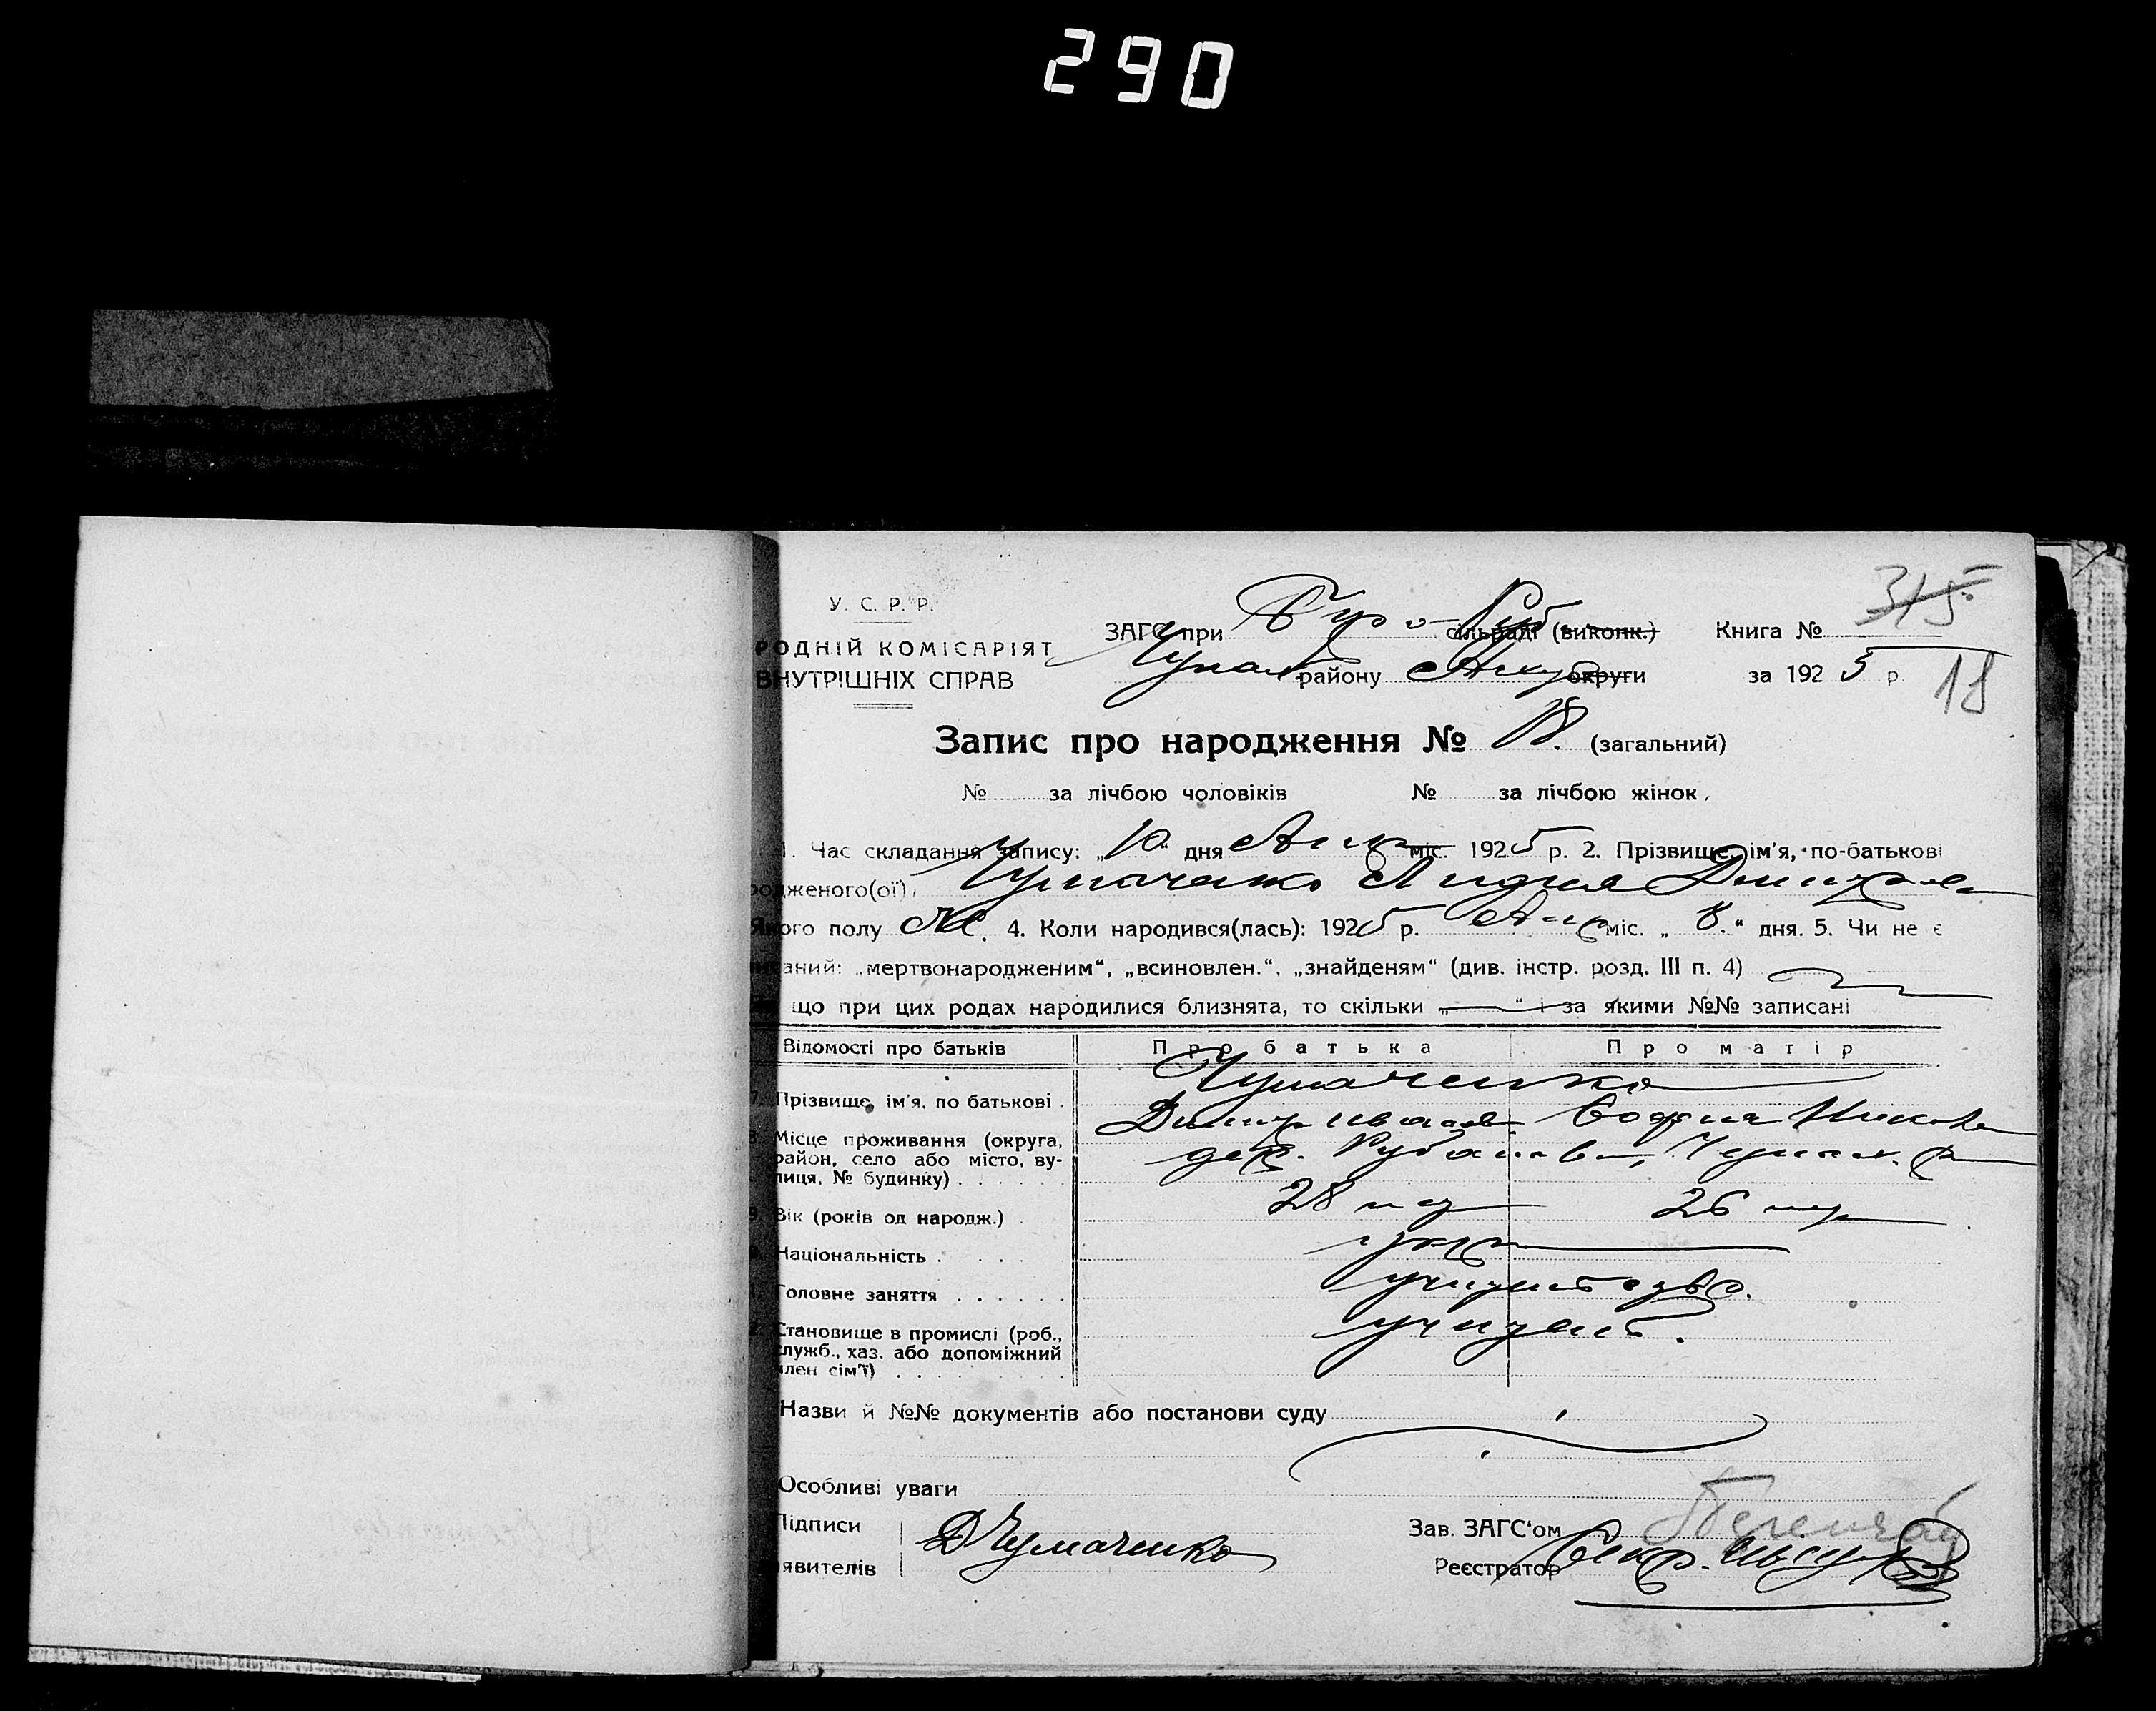 290
У. С. Р. Р.
РОДНІЙ КОМІСАРІЯТ
ВНУТРІШНІХ СПРАВ
ЗАГС при сільраді (виконк.) Книга № 315
району округи за 1925 р. 18
Запис про народження № 18. (загальний)
№ за лічбою чоловіків № за лічбою жінок,
1. Час складання запису: „10“ дня Апр міс. 1925 р. 2. Прізвище, ім'я, по-батькові
родженого(ої), Чумаченко Лидия Дмитров
Якого полу Ж. 4. Коли народився(лась): 1925 р. Апр міс. „8.“ дня. 5. Чи не є
исаний: „мертвонародженим“, „всиновлен.“, „знайденям“ (див. інстр. розд. III п. 4)
що при цих родах народилися близнята, то скільки „ “ і за якими №№ записані
Відомості про батьків Про батька Про матір
7. Прізвище, ім'я, по батькові . Чумаченко
Дмитр Иванов София
8. Місце проживання (округа,
район, село або місто, ву-
лиця, № будинку) . . . . . .
9. Вік (років од народж.) . 28 26
Національність . . . . укр
Головне заняття . . . . . .
Становище в промислі (роб.,
служб., хаз. або допоміжний
член сім'ї) . . . . . . учитель.
Назви й №№ документів або постанови суду
Особливі уваги
Підписи
явителів
ДЧумаченко
Зав. ЗАГС'ом
Реєстратор Секр.